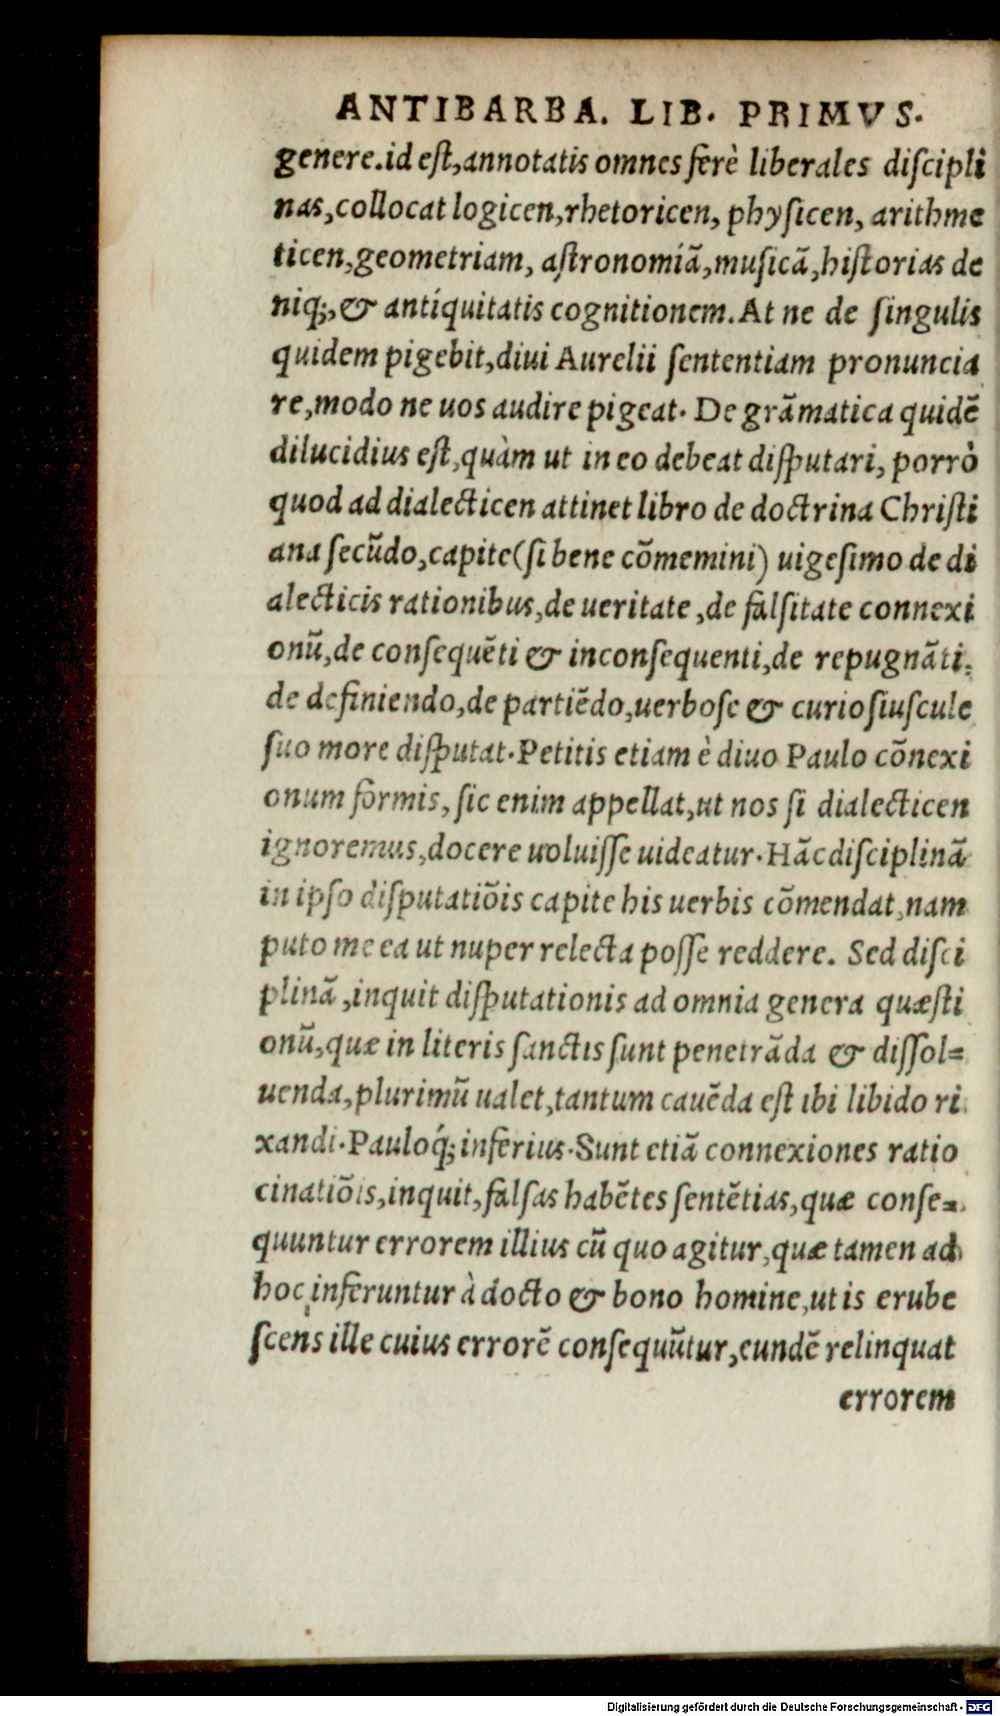 ANTIBARBA. LIB. PRIMVS.
genere.id eſt,annotatis omnes ferè liberales diſcipli
nas,collocat logicen,rhetoricen, phyſicen, arithme
ticen,geometriam, aſtronomiã,muſicã,hiſtorias de
niq;,& antiquitatis cognitionem.At ne de ſingulis
quidem pigebit,diui Aurelii ſententiam pronuncia
re,modo ne uos audire pigeat. De grãmatica quidẽ
dilucidius eſt,quàm ut in eo debeat diſputari, porrò
quod ad dialecticen attinet libro de doctrina Chriſti
ana ſecũdo,capite(ſi bene cõmemini) uigeſimo de di
alecticis rationibus,de ueritate ,de falſitate connexi
onũ,de conſequẽti & inconſequenti,de repugnãti.
de definiendo,de partiẽdo,uerboſe & curioſiuſcule
ſuo more diſputat.Petitis etiam è diuo Paulo cõnexi
onum formis, ſic enim appellat,ut nos ſi dialecticen
ignoremus,docere uoluiſſe uideatur.Hãc diſciplinã
in ipſo diſputatiõis capite his uerbis cõmendat,nam
puto me ea ut nuper relecta poſſe reddere. Sed diſci
plinã ,inquit diſputationis ad omnia genera quæſti
onũ,quæ in literis ſanctis ſunt penetrãda & diſſol=
uenda,plurimũ ualet,tantum cauẽda eſt ibi libido ri
xandi.Pauloq́; inferius.Sunt etiã connexiones ratio
cinatiõis,inquit,falſas habẽtes ſentẽtias,quæ conſe=
quuntur errorem illius cũ quo agitur,quæ tamen ad
hoc inferuntur à docto & bono homine,ut is erube
ſcens ille cuius errorẽ conſequũtur,eundẽ relinquat
errorem
Digitalisierung gefördert durch die Deutsche Forschungsgemeinschaft - DFG